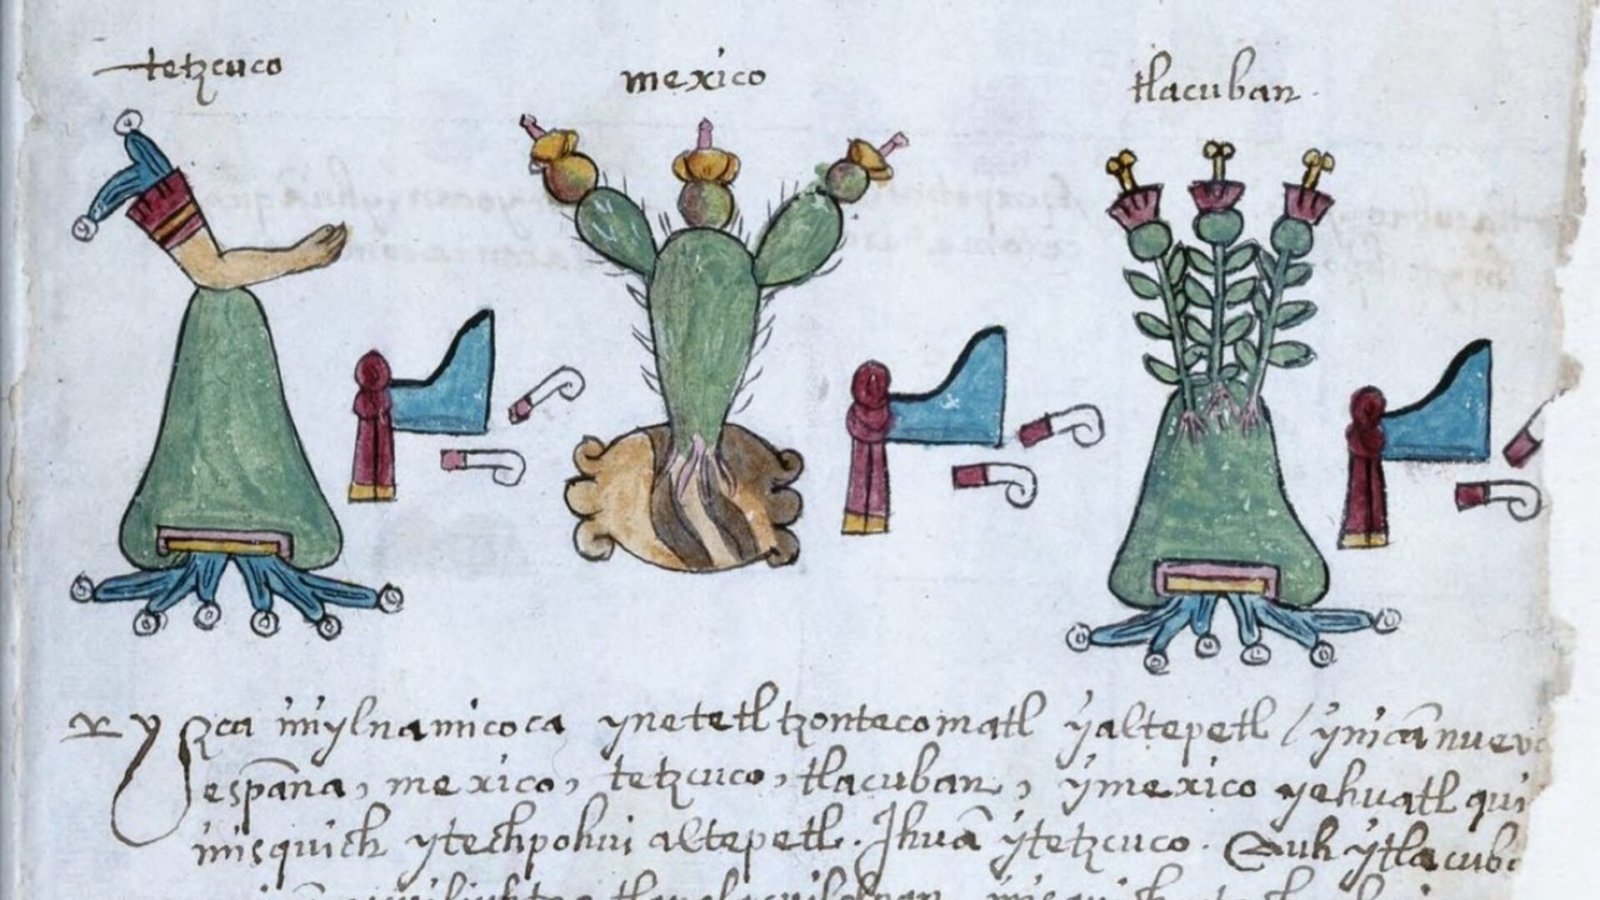 tetzcuco
mexico
tlacuban
Yzca ynylnamicoca ynetetl tzontecomatl yaltepetl / ynicā nueva
españa, mexico, tetzcuco, tlacuban, ymexico yehuatl qui
misquich ytechpohui altepetl. Ihuā ytetzcuco. Auh ytlacuba